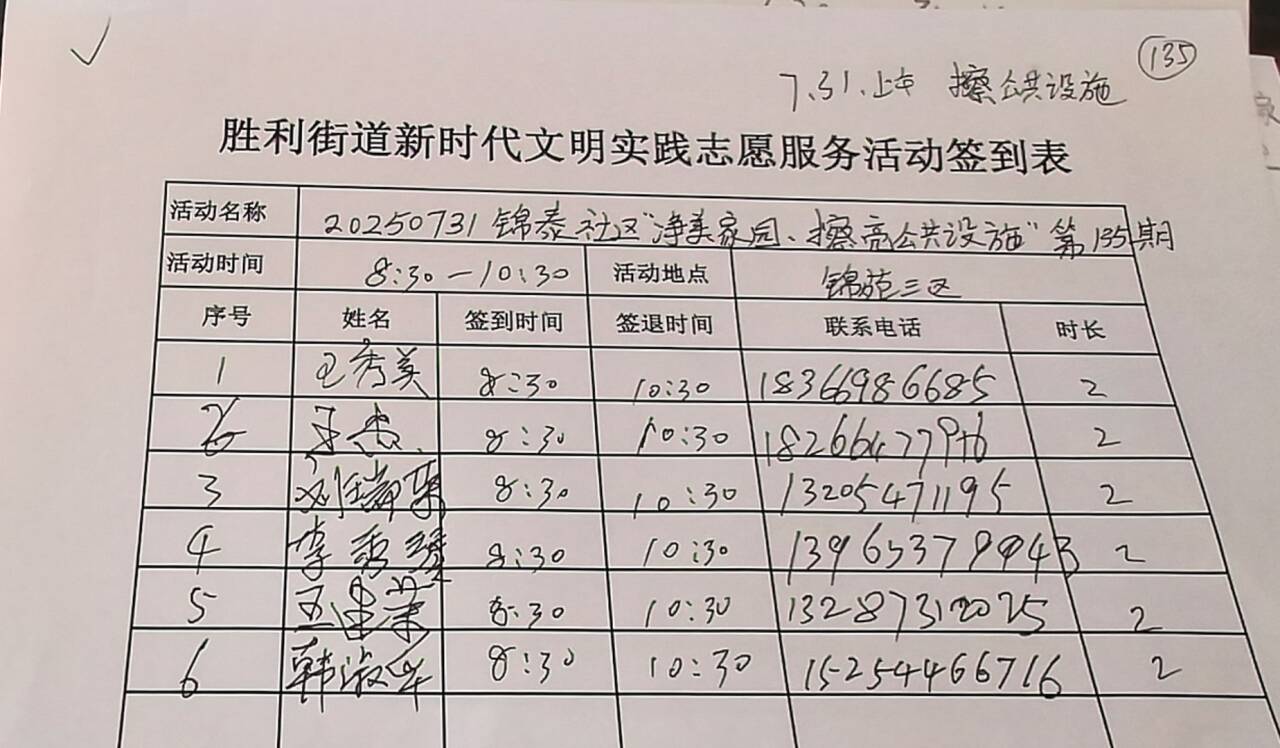 135
7.31.上午 擦公共设施
胜利街道新时代文明实践志愿服务活动签到表
活动名称 20250731锦泰社区"净美家园、擦亮公共设施"第135期
活动时间 8:30—10:30 活动地点 锦苑三区
序号 姓名 签到时间 签退时间 联系电话 时长
1 王秀美 8:30 10:30 18366986685 2
2 王杰 8:30 10:30 2
3 刘瑞菊 8:30 10:30 13205471195 2
4 李秀 8:30 10:30 2
5 8:30 10:30 2
6 韩淑华 8:30 10:30 15254466716 2